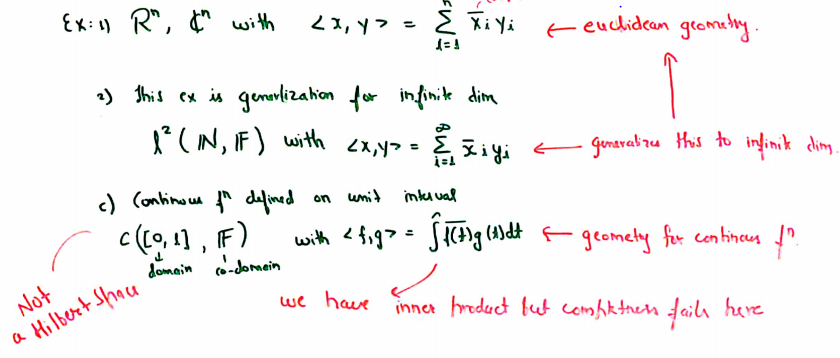 Ex: 1) ℝⁿ, ₵ⁿ with <x, y> = Σ_{i=1}^{n} x̄i yi ← euclidean geometry.
2) This ex is generlization for infinite dim
l²(ℕ, 𝔽) with <x,y> = Σ_{i=1}^{∞} x̄i yi ← generalizes this to infinite dim.
c) Continous fⁿ defined on unit interval
C([0,1], 𝔽) with <f,g> = ∫ f̄(t) g(t)dt ← geometry for continous fⁿ.
domain co-domain
Not
a Hilbert Space
we have inner product but completness fails here